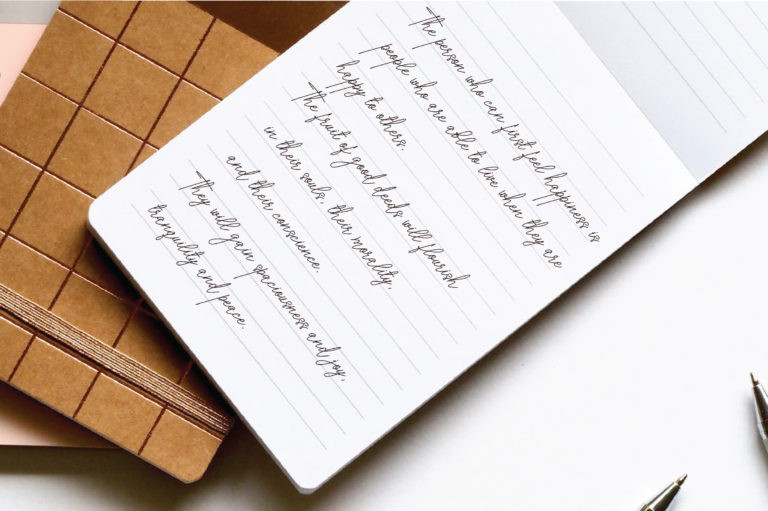 The person who can first feel happiness is
people who are able to live when they are
happy to others.
The fruit of good deeds will flourish
in their souls, their morality,
and their conscience.
They will gain spaciousness and joy,
tranquility and peace.